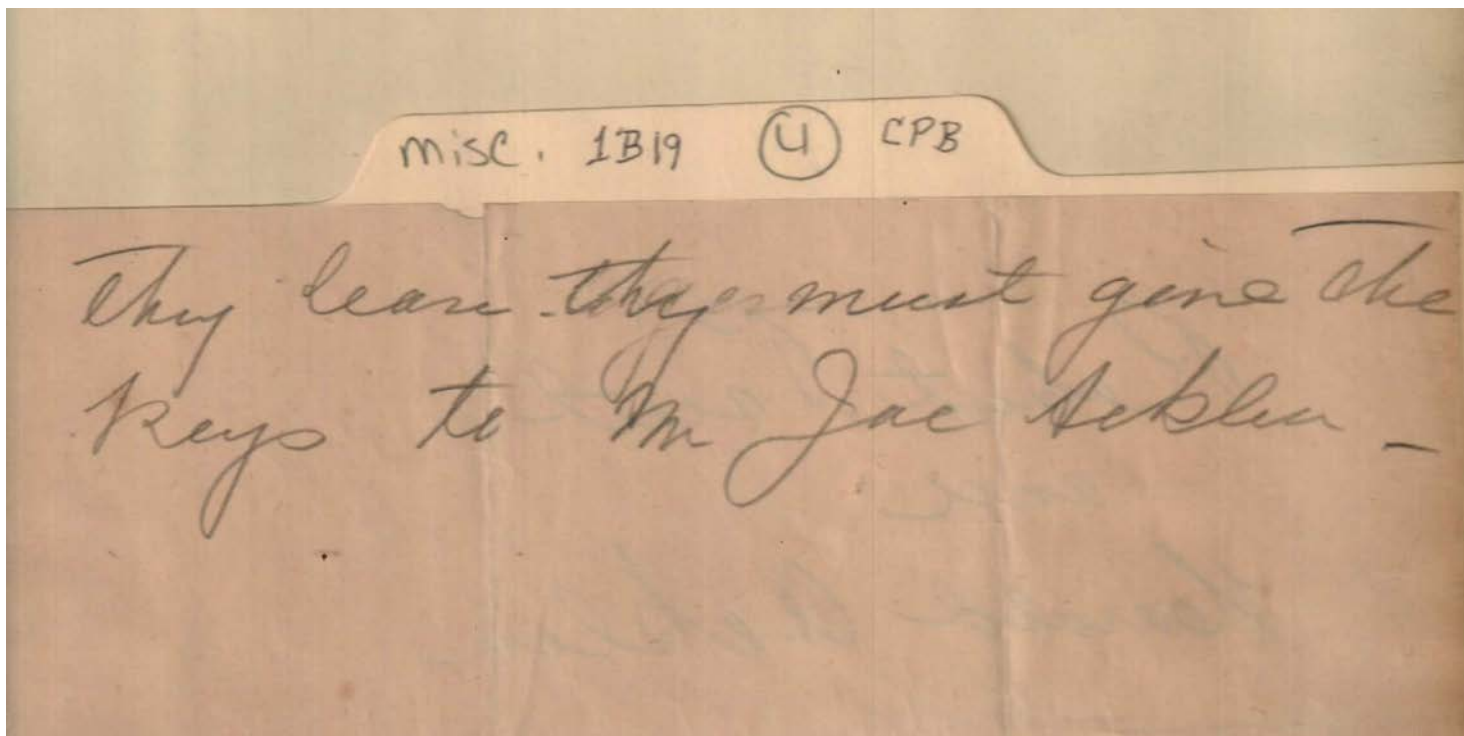 misc. 1B19 4 CPB
They leave they must give the
Keys to Mr Joe Acklen -